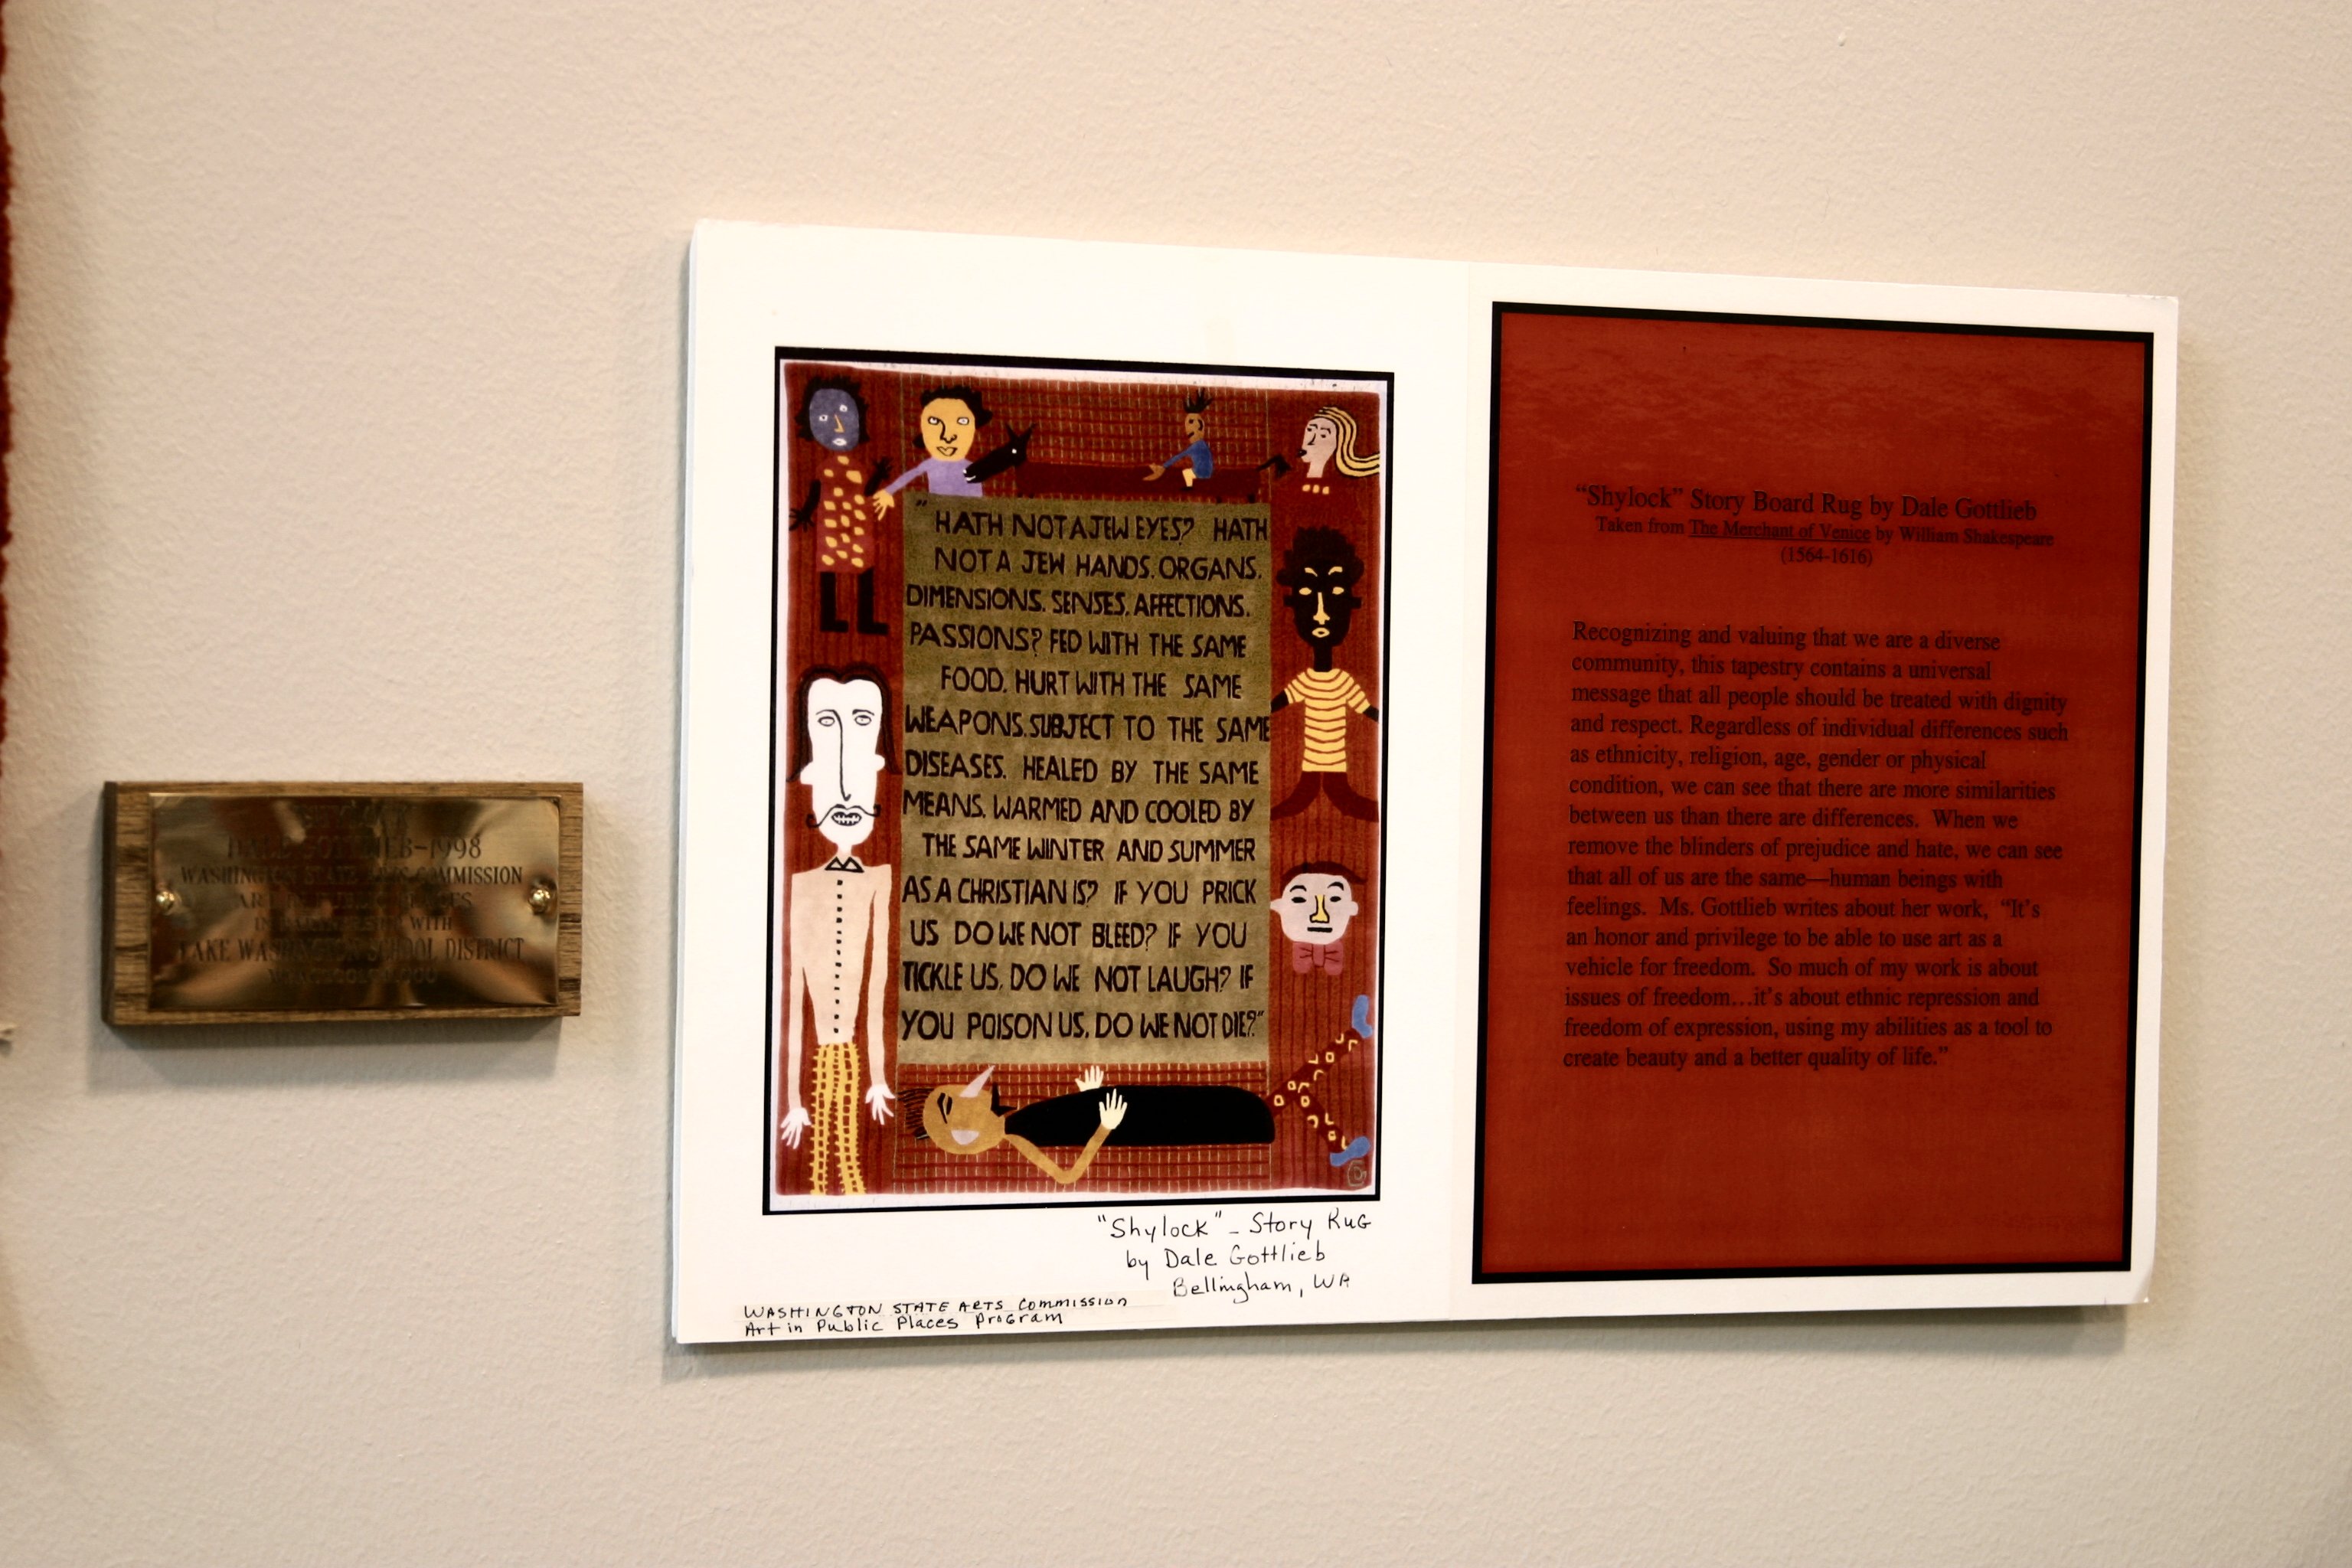 DALE GOTTLIEB-1998
WASHINGTON STATE ARTS COMMISSION
ART IN PUBLIC PLACES
IN PARTNERSHIP WITH
LAKE WASHINGTON SCHOOL DISTRICT
"HATH NOT A JEW EYES? HATH
NOT A JEW HANDS. ORGANS.
DIMENSIONS. SENSES. AFFECTIONS.
PASSIONS? FED WITH THE SAME
FOOD. HURT WITH THE SAME
WEAPONS. SUBJECT TO THE SAME
DISEASES. HEALED BY THE SAME
MEANS. WARMED AND COOLED BY
THE SAME WINTER AND SUMMER
AS A CHRISTIAN IS? IF YOU PRICK
US DO WE NOT BLEED? IF YOU
TICKLE US. DO WE NOT LAUGH? IF
YOU POISON US. DO WE NOT DIE?"
"Shylock" - Story Rug
by Dale Gottlieb
Bellingham, WA
WASHINGTON STATE ARTS Commission
Art in Public Places Program
"Shylock" Story Board Rug by Dale Gottlieb
Taken from The Merchant of Venice by William Shakespeare
(1564-1616)
Recognizing and valuing that we are a diverse
community, this tapestry contains a universal
message that all people should be treated with dignity
and respect. Regardless of individual differences such
as ethnicity, religion, age, gender or physical
condition, we can see that there are more similarities
between us than there are differences. When we
remove the blinders of prejudice and hate, we can see
that all of us are the same—human beings with
feelings. Ms. Gottlieb writes about her work, "It's
an honor and privilege to be able to use art as a
vehicle for freedom. So much of my work is about
issues of freedom…it's about ethnic repression and
freedom of expression, using my abilities as a tool to
create beauty and a better quality of life."